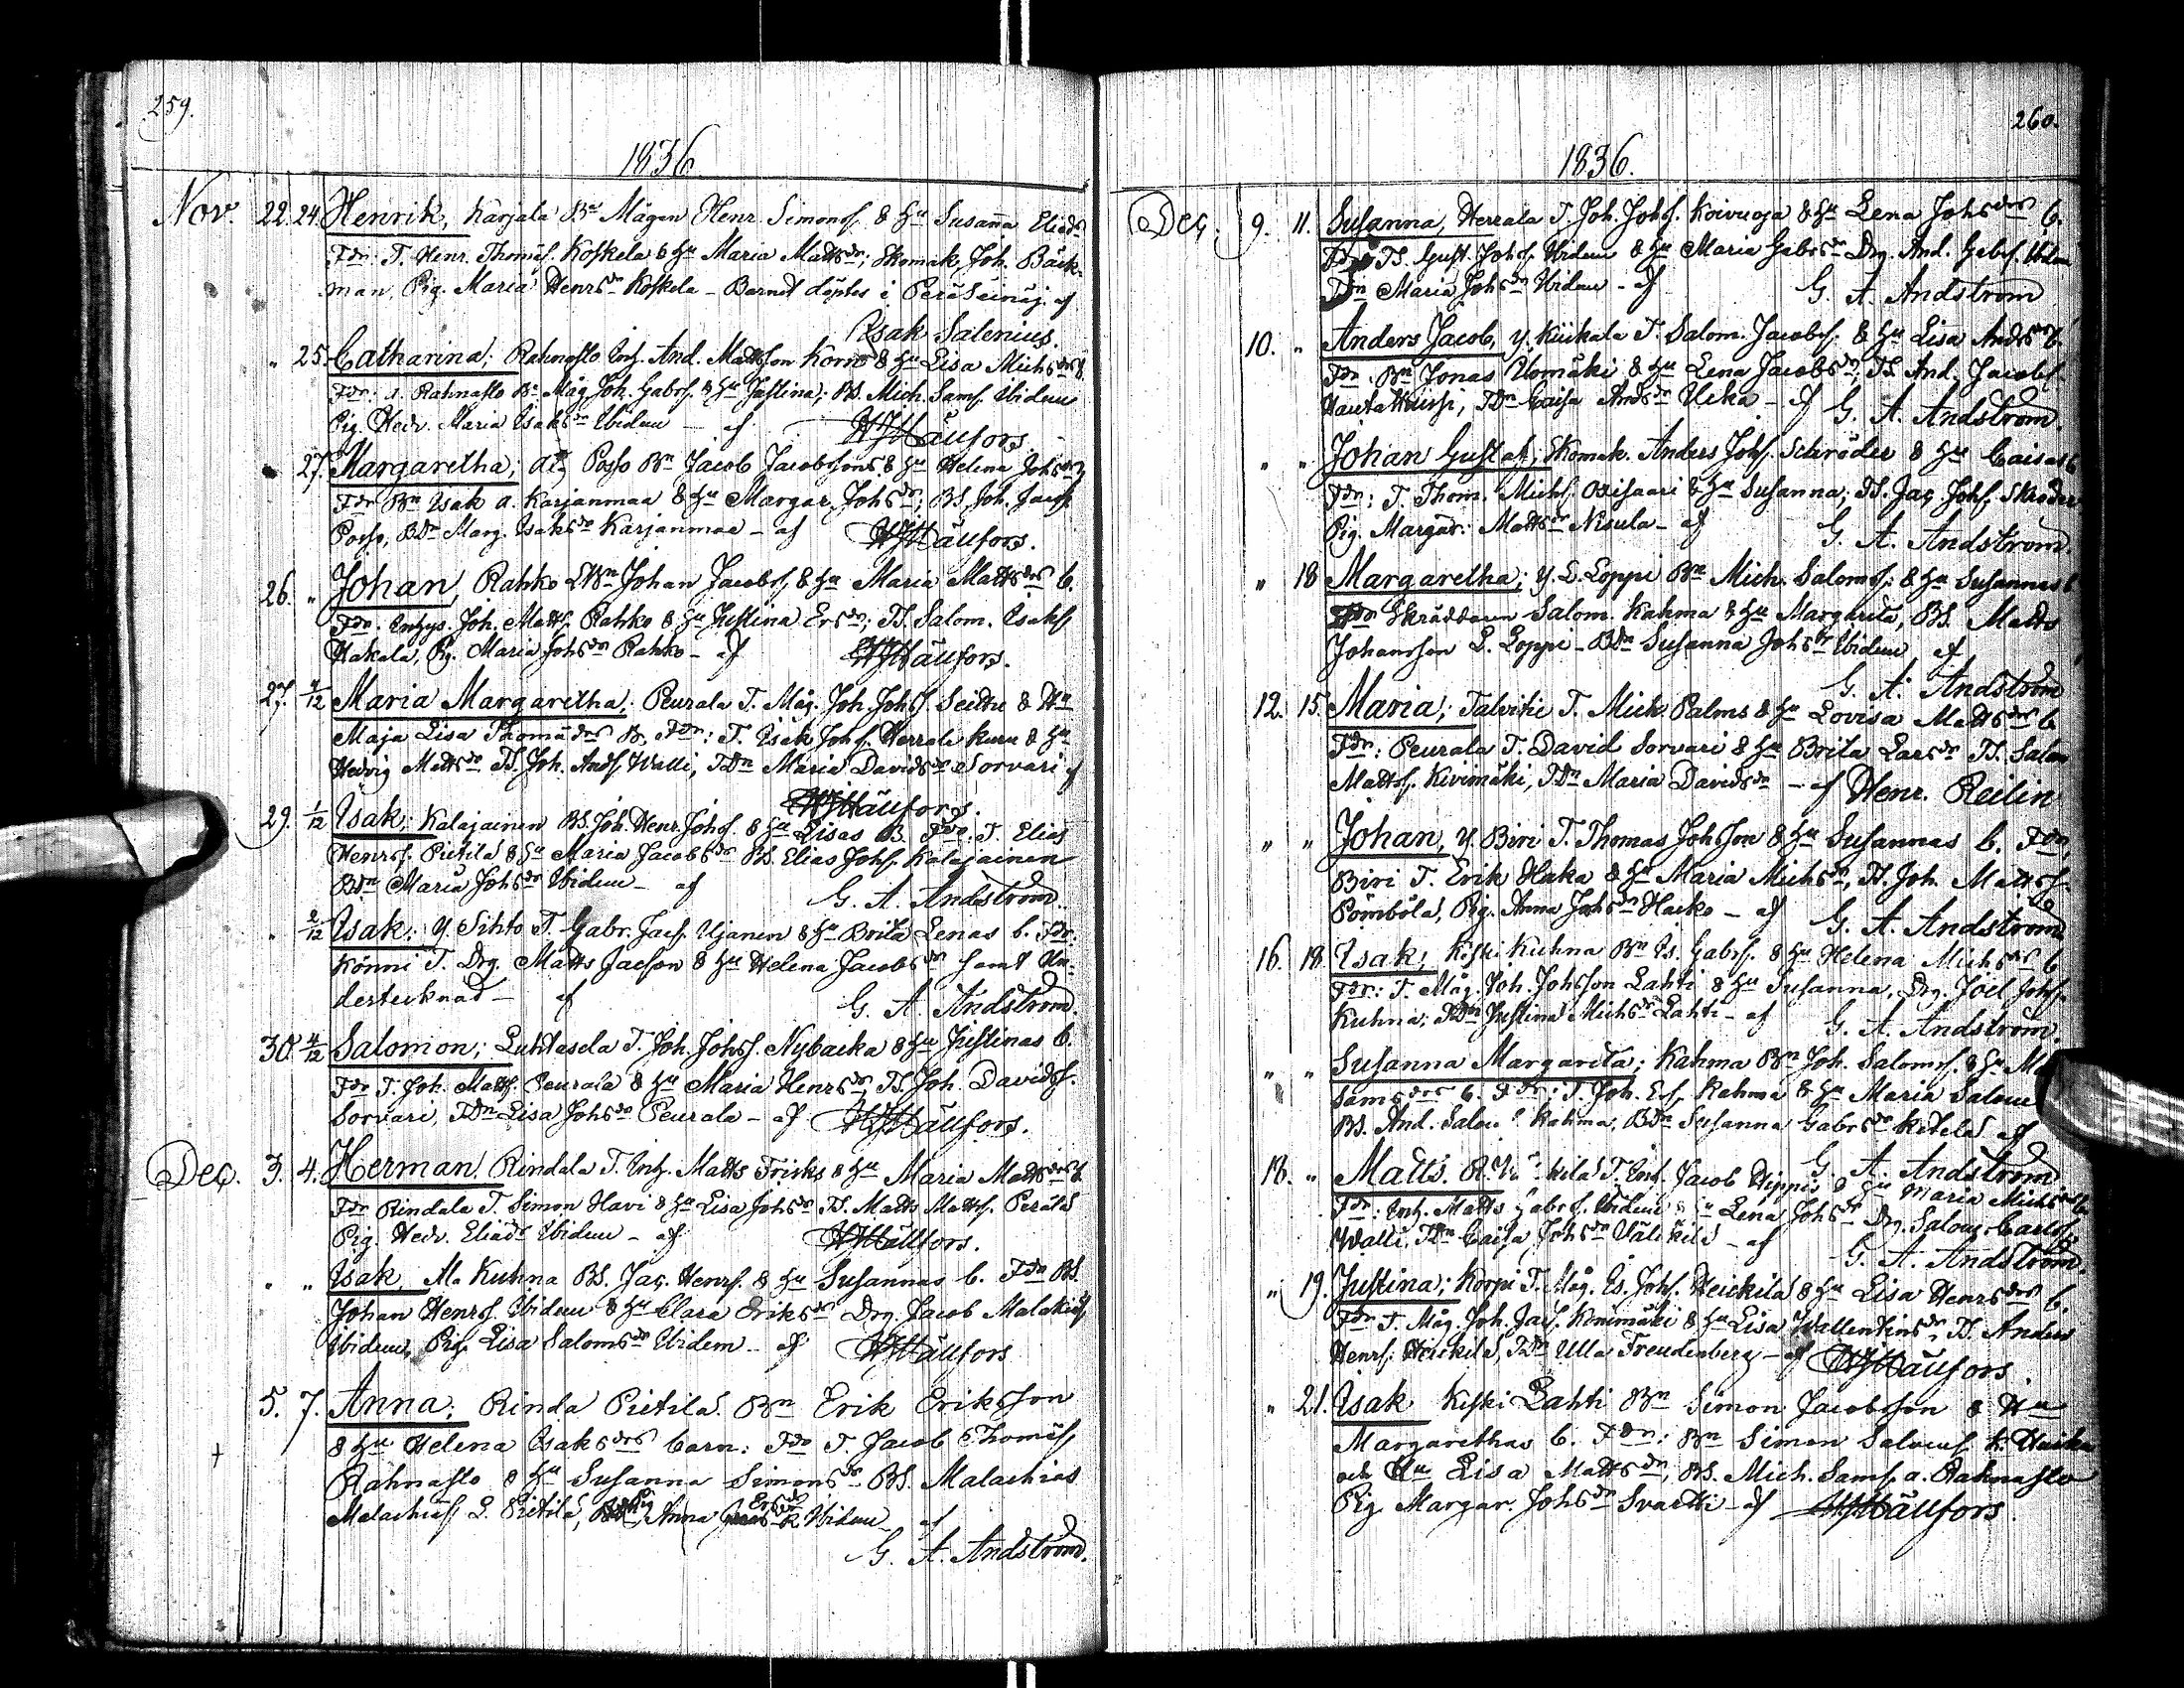 259.
1836
Nov. 22. 24. Henrik, Karjala Bn Mågen Henr. Simonss. & Hu Susanna Eliæds
Fdr: T. Henr. Thomæs. Koskela & Hu Maria Mattsdr; Skomak. Joh. Bäck-
man, Pig. Maria Henrsdr Koskela – Barnet döptes i Peräseinäj. af
Isak Salenius.
" 25. Catharina; Rahnasto Inh. And. Mattsson Körro & Hu Lisa Michsdrs b.
Fdr: a. Rahnasto Bn Måg Joh. Gabrs. & Hu Justina; BS. Mich. Sams. Ibidem
Pig. Hedv. Maria Isaksdr Ibidem – af
27. Margaretha; Posso Bn Jacob Jacobssons & Hu Helena Johsdrs
Fdr Bn Isak a. Karjanmaa & Hu Margar. Johsdr; BS. Joh. Jacss.
Posso, BDr Marg. Isaksdr Karjanmaa – af
26. " Johan, Rahko Bn Johan Jacobss. & Hu Maria Mattsdrs b.
Fdr. Inhys. Joh. Matts. Rahko & Hu Justina Ersdr; TS. Salom. Isakss.
Hakala, Pig. Maria Johsdr Rahko – af
27. 4/12 Maria Margaretha; Peurala T. Måg. Joh. Johss. Seithu & Hu
Maja Lisa Thomædrs B. Fdr: T. Isak Johss. Herrala Kuru & Hu
Hedvig Mattsdr TS. Joh. Ands. Walli, TDn Maria Davidsdr Sorvari af
29. 1/12 Isak; Kalajainen BS. Joh. Henr. Johss. & Hu Lisas B. Fdr. T. Elias
Henrss. Pietilä & Hu Maria Jacobsdr BS. Elias Johss. Kalajainen
BDn Maria Johsdr Ibidem – af G. A. Andström.
" 2/12 Isak; Y Sihto T. Gabr. Jacs. Ujanen & Hu Brita Lenas b. Fdr:
Könni T. Drg. Matts Jacsson & Hu Helena Jacobsdr samt Un-
dertecknad – af G. A. Andström.
30. 4/12 Salomon; Luhtasela T. Joh. Johss. Nybacka & Hu Justinas b.
Fdr T. Joh. Matts. Peurala & Hu Maria Henrsdr, TS. Joh. Davidss.
Sorvari, TDn Lisa Johsdr Peurala – af
Dec. 3. 4. Herman. Rindala T. Inh. Matts Friiks & Hu Maria Mattsdrs b.
Fdr Rindala T. Simon Havi & Hu Lisa Johsdr TS. Matts Mattss. Perälä
Pig. Hedv. Eliædr Ibidem – af
" " Isak, Kuhna BS. Jac. Henrs. & Hu Susannas b. Fdr BS.
Johan Henrss. Ibidem & Hu Clara Eriksdr Drg. Jacob Malakiæs.
Ibidem, Pig. Lisa Salomsdr Ibidem – af
5. 7. Anna; Rinda Pietilä. Bn Erik Eriksson
& Hu Helena Isaksdrs barn: Fdr T. Jacob Thomæs.
Rahnasto & Hu Susanna Simonsdr BS. Malachias
Malachiæs. L. Pietilä, Pig Anna Ersdr Ibidem – af
G. A. Andström.
260.
1836.
Dec. 9. 11. Susanna, Herrala T. Joh. Johss. Koivuoja & Hu Lena Johsdrs b.
Fdr TS. Gust. Johss. Ibidem & Hu Maria Gabrsdr Drg. And. Gabrs. Ibidem
TDn Maria Johsdr Ibidem – af G. A. Andström
10. " Anders Jacob, Y. Kiikala T. Salom. Jacobss. & Hu Lisa Andsdrs b.
Fdr. Bn Jonas Uomäki & Hu Lena Jacobsdr; TS. And. Jacobss.
TDn Caisa Andsdr Ucka – af G. A. Andström.
" " Johan Gustaf; Skomak. Anders Johss. Schröder & Hu Caisas b.
Fdr: T. Thom. Michs. Orisaari & Hu Susanna; TS. Jac. Johss. Skröder
Pig. Margar: Mattsdr Nisula – af G. A. Andström.
" 18 Margaretha; Y. L. Loppi Bn Mich. Saloms. & Hu Susannas b.
Fdr Skräddaren Salom. Kahma & Hu Margareta, BS. Matts
Johansson L. Loppi – BDn Susanna Johsdr Ibidem af
G. A. Andström
12. 15. Maria; Talvitie T. Mich. Palms & Hu Lovisa Mattsdrs b.
Fdr: Peurala T. David Sorvari & Hu Brita Larsdr TS. Salom
Mattss. Kivimäki, TDn Maria Davidsdr – af Henr. Reilin
" " Johan, Y. Biri T. Thomas Johsson & Hu Susannas b. Fdr,
Biri T. Erik Haka & Hu Maria Michsdr, TS. Joh. Mattss.
Pömbölä, Pig. Anna Johsdr Harko – af G. A. Andström
16. 18 Isak; Keski Kuhna Bn Is. Gabrs. & Hu Helena Michsdrs b.
Fdr: T. Måg. Joh. Johsson Lahti & Hu Susanna, Drg. Joel Johss.
Kuhna; TDn Justina Michsdr Lahti – af G. A. Andström.
" " Susanna Margareta; Kahma Bn Joh. Saloms. & Hu
Samsdrs b. Fdr: T. Joh. Ers. Kahma & Hu Maria Salom
BS. And. Salom. Kahma, BDn Susanna Gabrsdr Ketelä af
G. A. Andström
18. " Matts. T. Inh. Jacob Hippi & Hu Maria Michsdrs b.
Fdr: Inh. Matts Gabrs. Ibidem & Hu Lena Johsdr Drg. Salom. Carlss.
Walli. TDn Caisa Johsdr Välikilä – af G. A. Andström.
" 19. Justina; Korpi T. Måg. Es. Johss. Heickilä & Hu Lisa Henrsdrs b.
Fdr T. Måg. Joh. Jacs. Könimäki & Hu Lisa Wallentinsdr, TS. Anders
Henrs. Heickilä, TDn Ulla Freudenberg – af
" 21. Isak Keski Lahti Bn Simon Jacobsson & Hu
Margarethas b. Fdr: Bn Simon Saloms. K. Harka
och Hu Lisa Mattsdr, BS. Mich. Sams. a. Rahnasto
Pig Margar. Johsdr Svartti – af